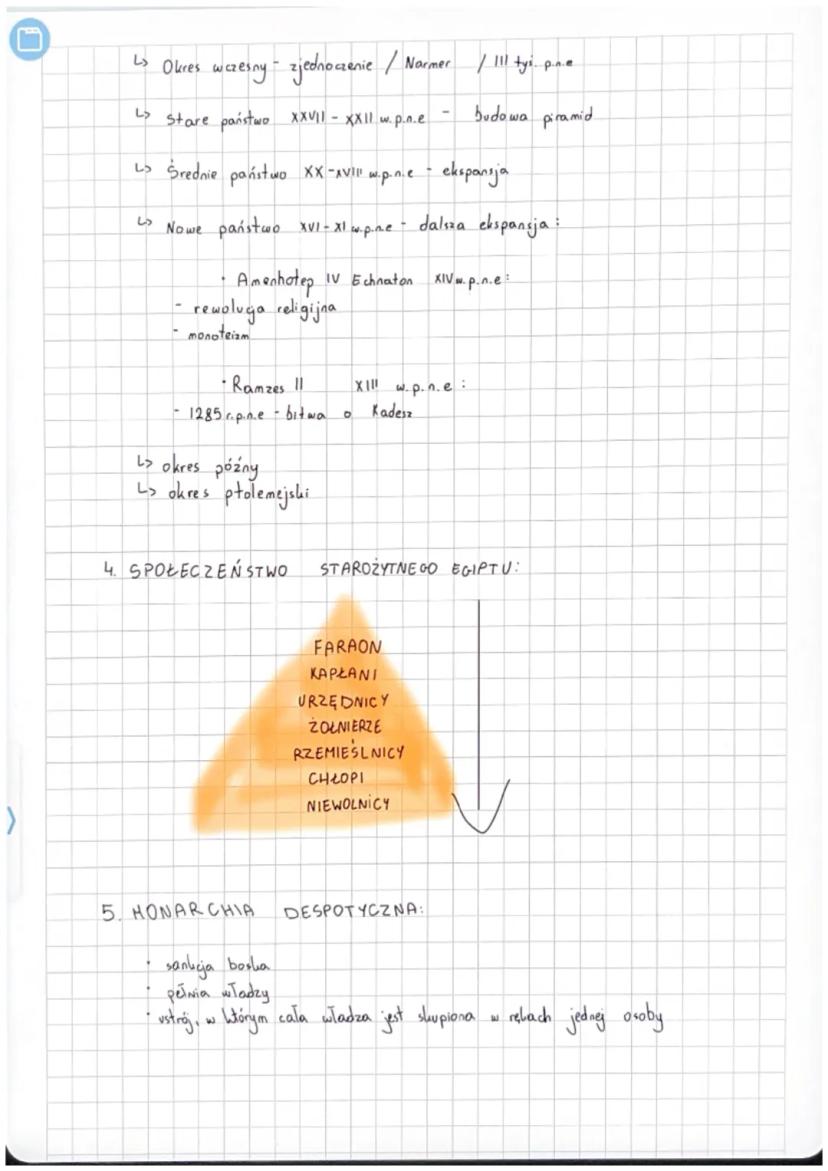 ↳ Okres wczesny - zjednoczenie / Narmer / III tyś. p.n.e
↳ Stare państwo XXVII - XXII w.p.n.e - budowa piramid
↳ Średnie państwo XX-XVIII w.p.n.e - ekspansja
↳ Nowe państwo XVI-XI w.p.n.e - dalsza ekspansja:
• Amenhotep IV Echnaton XIV w.p.n.e:
- rewolucja religijna
- monoteizm
• Ramzes II XIII w.p.n.e:
- 1285 r.p.n.e - bitwa o Kadesz
↳ okres późny
↳ okres ptolemejski
4. SPOŁECZEŃSTWO STAROŻYTNEGO EGIPTU:
FARAON
KAPŁANI
URZĘDNICY
ŻOŁNIERZE
RZEMIEŚLNICY
CHŁOPI
NIEWOLNICY
5. MONARCHIA DESPOTYCZNA:
• sankcja boska
• pełnia władzy
• ustrój, w którym cała władza jest skupiona w rękach jednej osoby